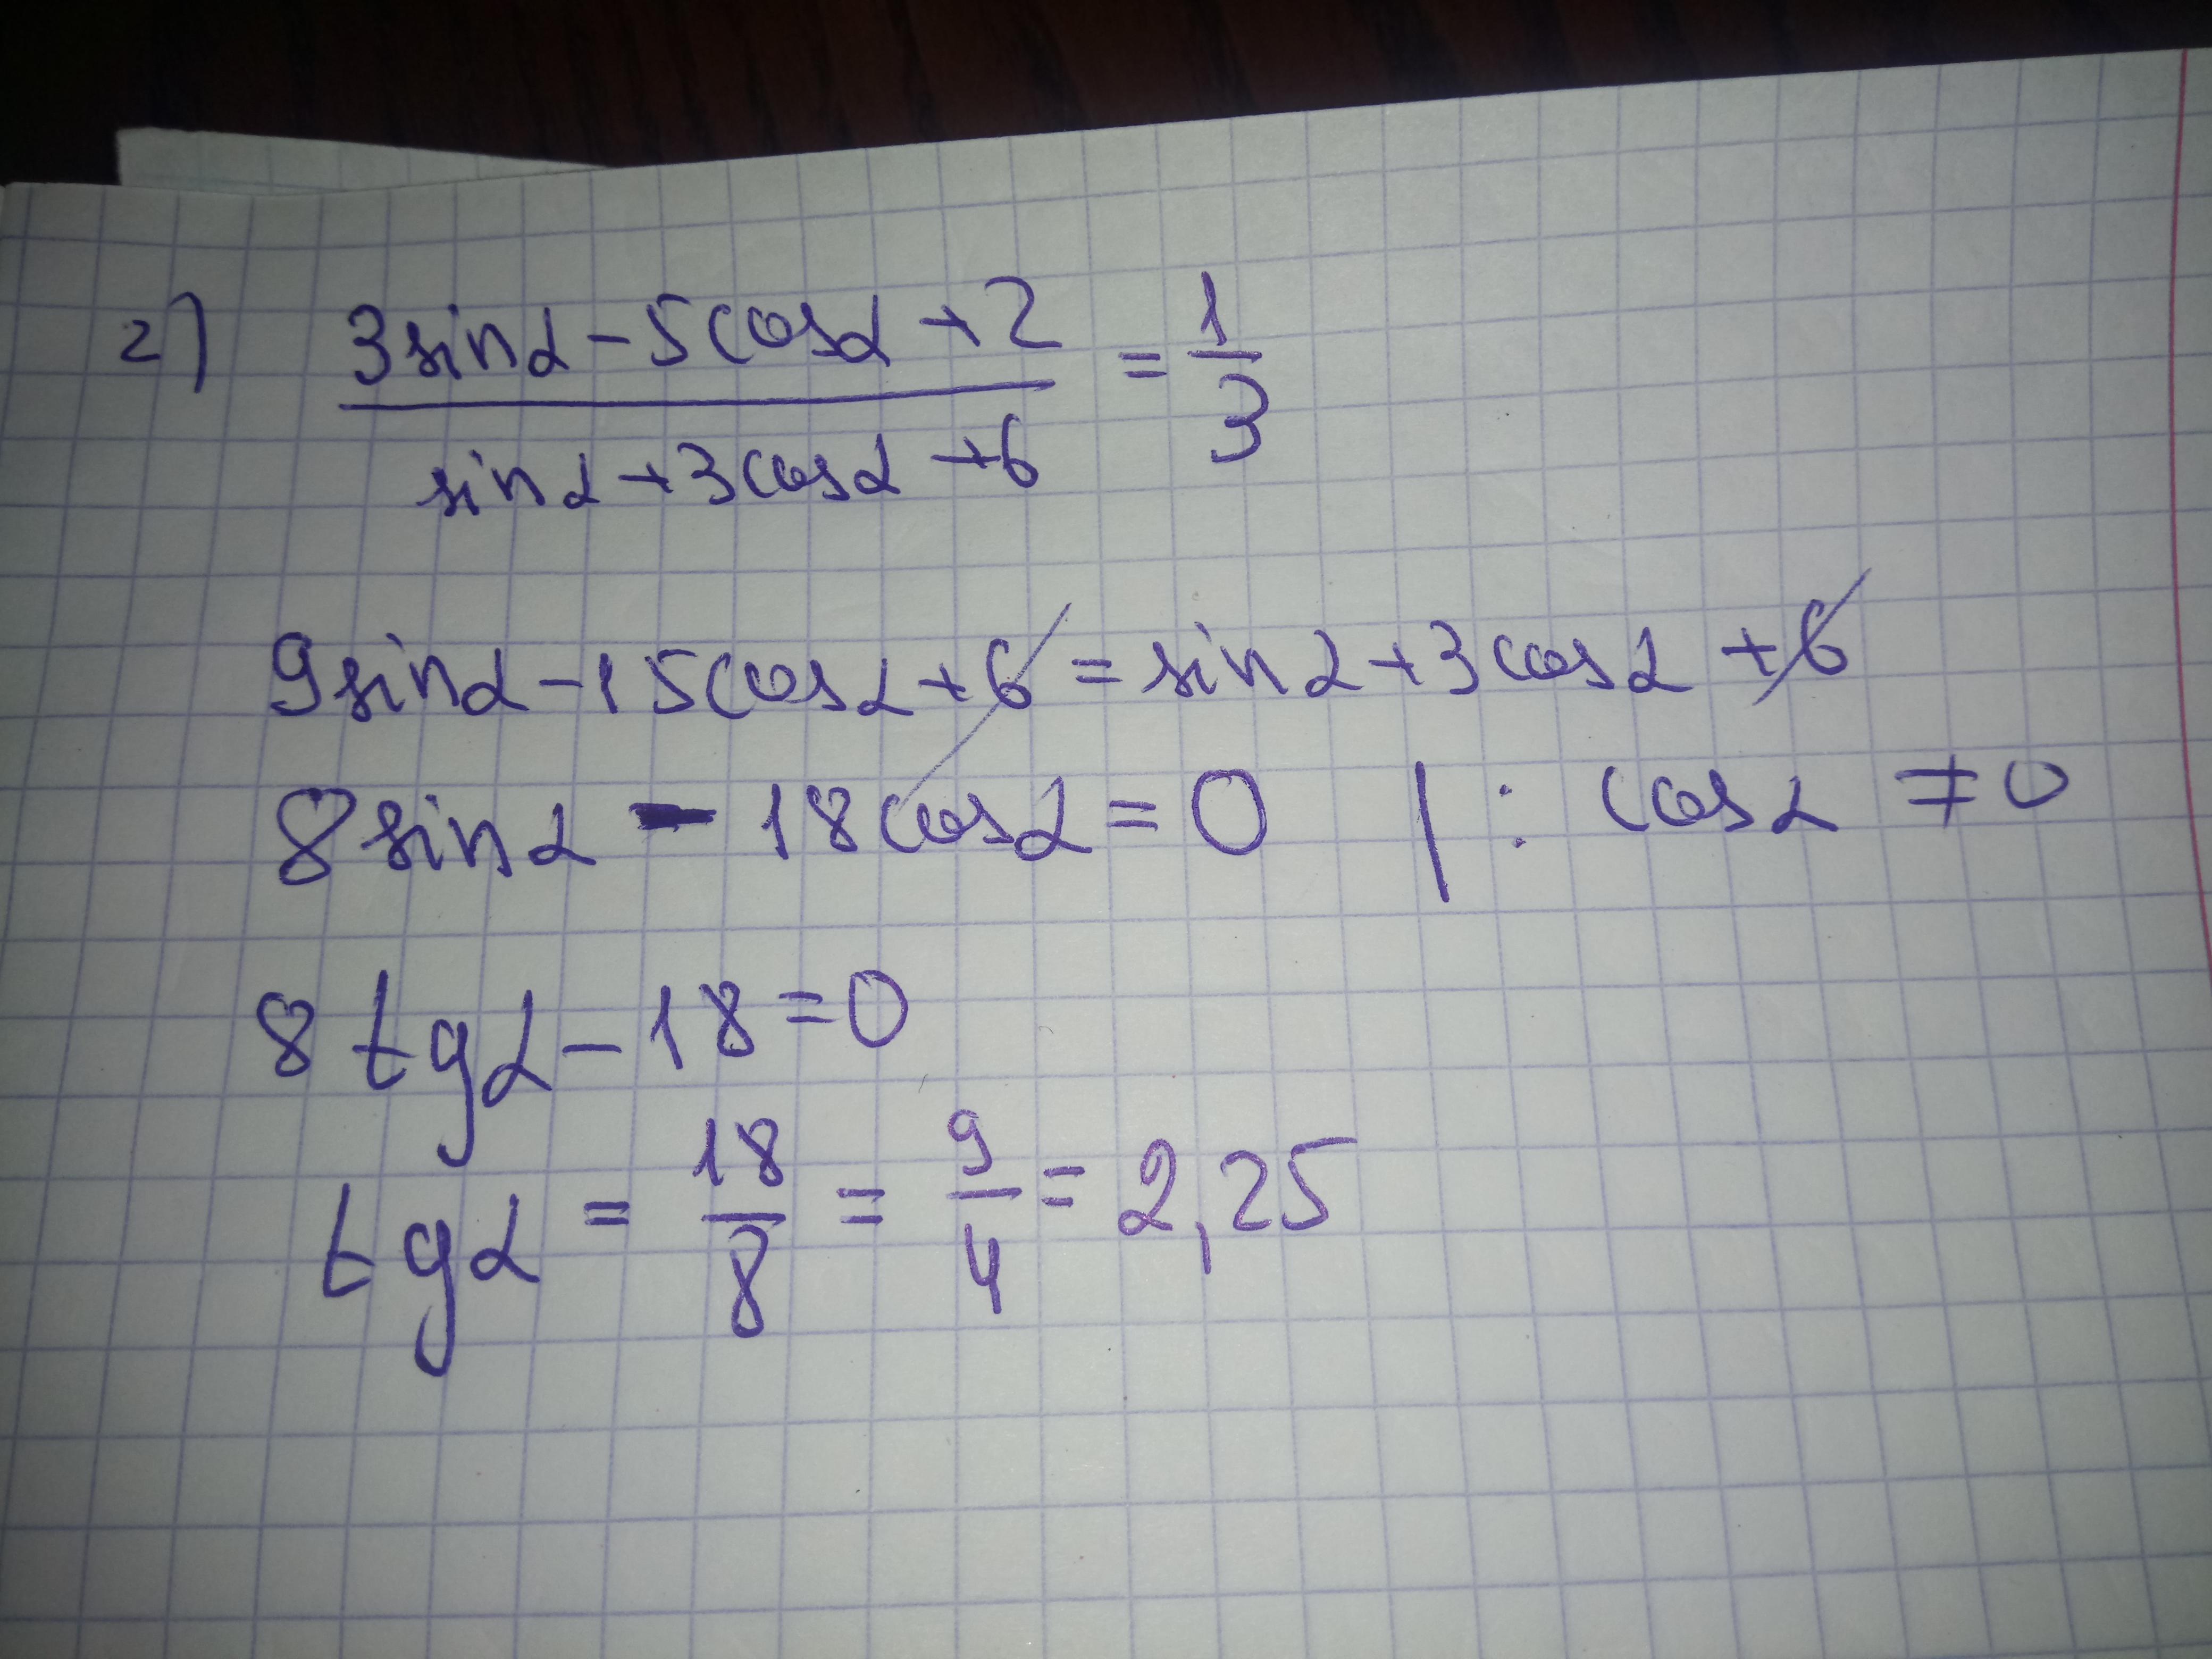 2) (3sinα - 5cosα + 2)/(sinα + 3cosα + 6) = 1/3
9sinα - 15cosα + 6 = sinα + 3cosα + 6
8sinα - 18cosα = 0 | : cosα ≠ 0
8 tgα - 18 = 0
tgα = 18/8 = 9/4 = 2,25